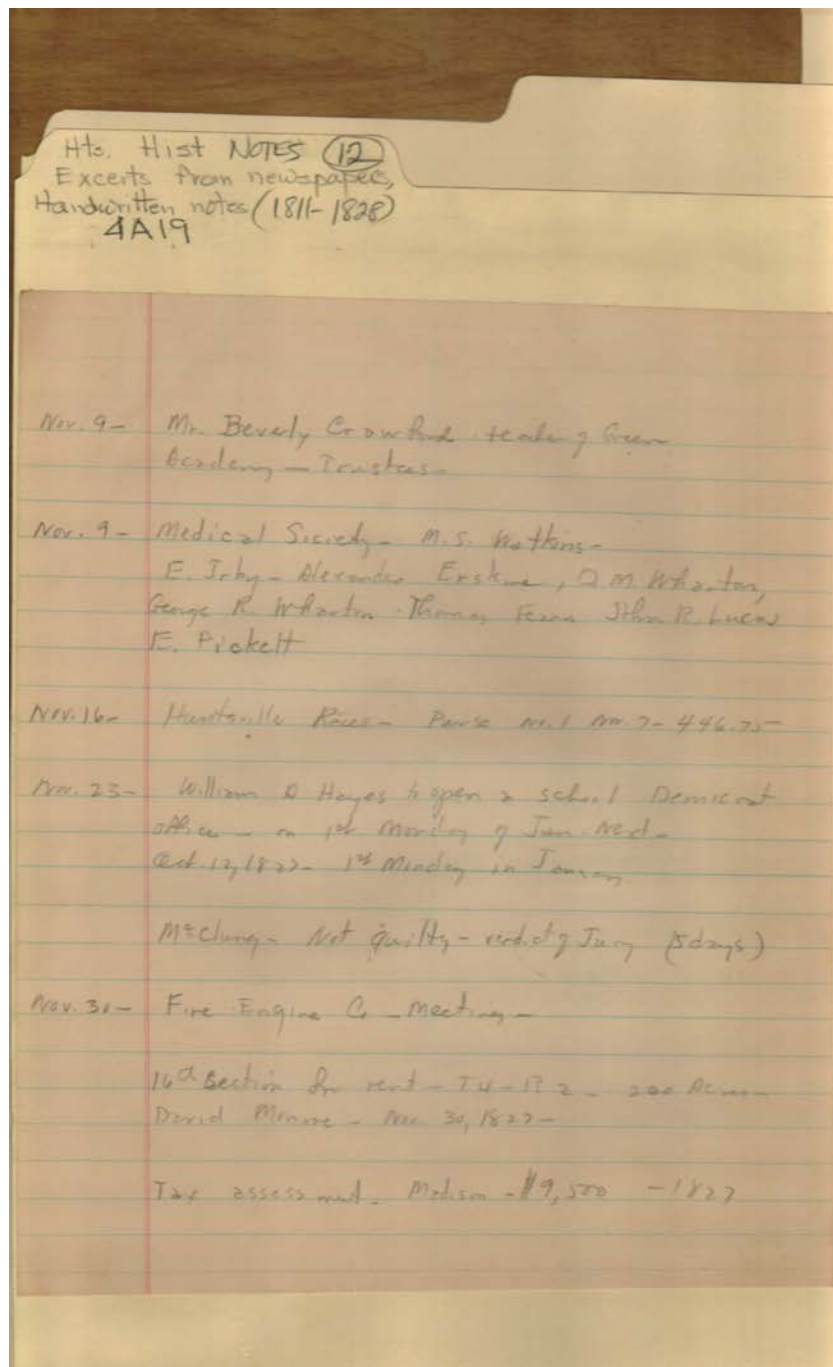 Hts. Hist NOTES 12
Excerts from newspapers,
Handwritten notes (1811-1828)
4A19
Nov. 9- Mr. Beverly Crawford of Green
Academy - Trustees-
Nov. 9- Medical Society- M.S. Watkins-
E. Irby- Alexander Erskine, D M. Wharton,
George R. Wharton Thomas Fearn John R. Lucas
E. Pickett
Nov. 16- Huntsville Races- Purse No. 1 446.75-
Nov. 23- William Hayes to open a school Democrat
office- on 1st Monday of Jan. Next-
Oct. 12, 1827- 1st Monday in January
McClung- Not Guilty- verdict of Jury (5 days)
Nov. 30- Fire Engine Co - Meeting-
16th Section for rent - T4-R2- 200 Acres-
David Moore- Nov. 30, 1827-
Tax assessment- Madison - $9,500 - 1827